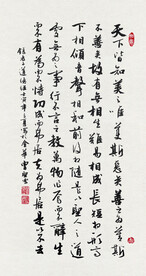 天下皆知美之為美斯惡矣善之為善斯
不善矣故有無相生難易相成長短相形高
下相傾音聲相和前後相隨是以聖人之道
處無為之事行不言之教萬物作焉而不辭生
而不有為而不恃功成而弗居夫惟弗居是以不去